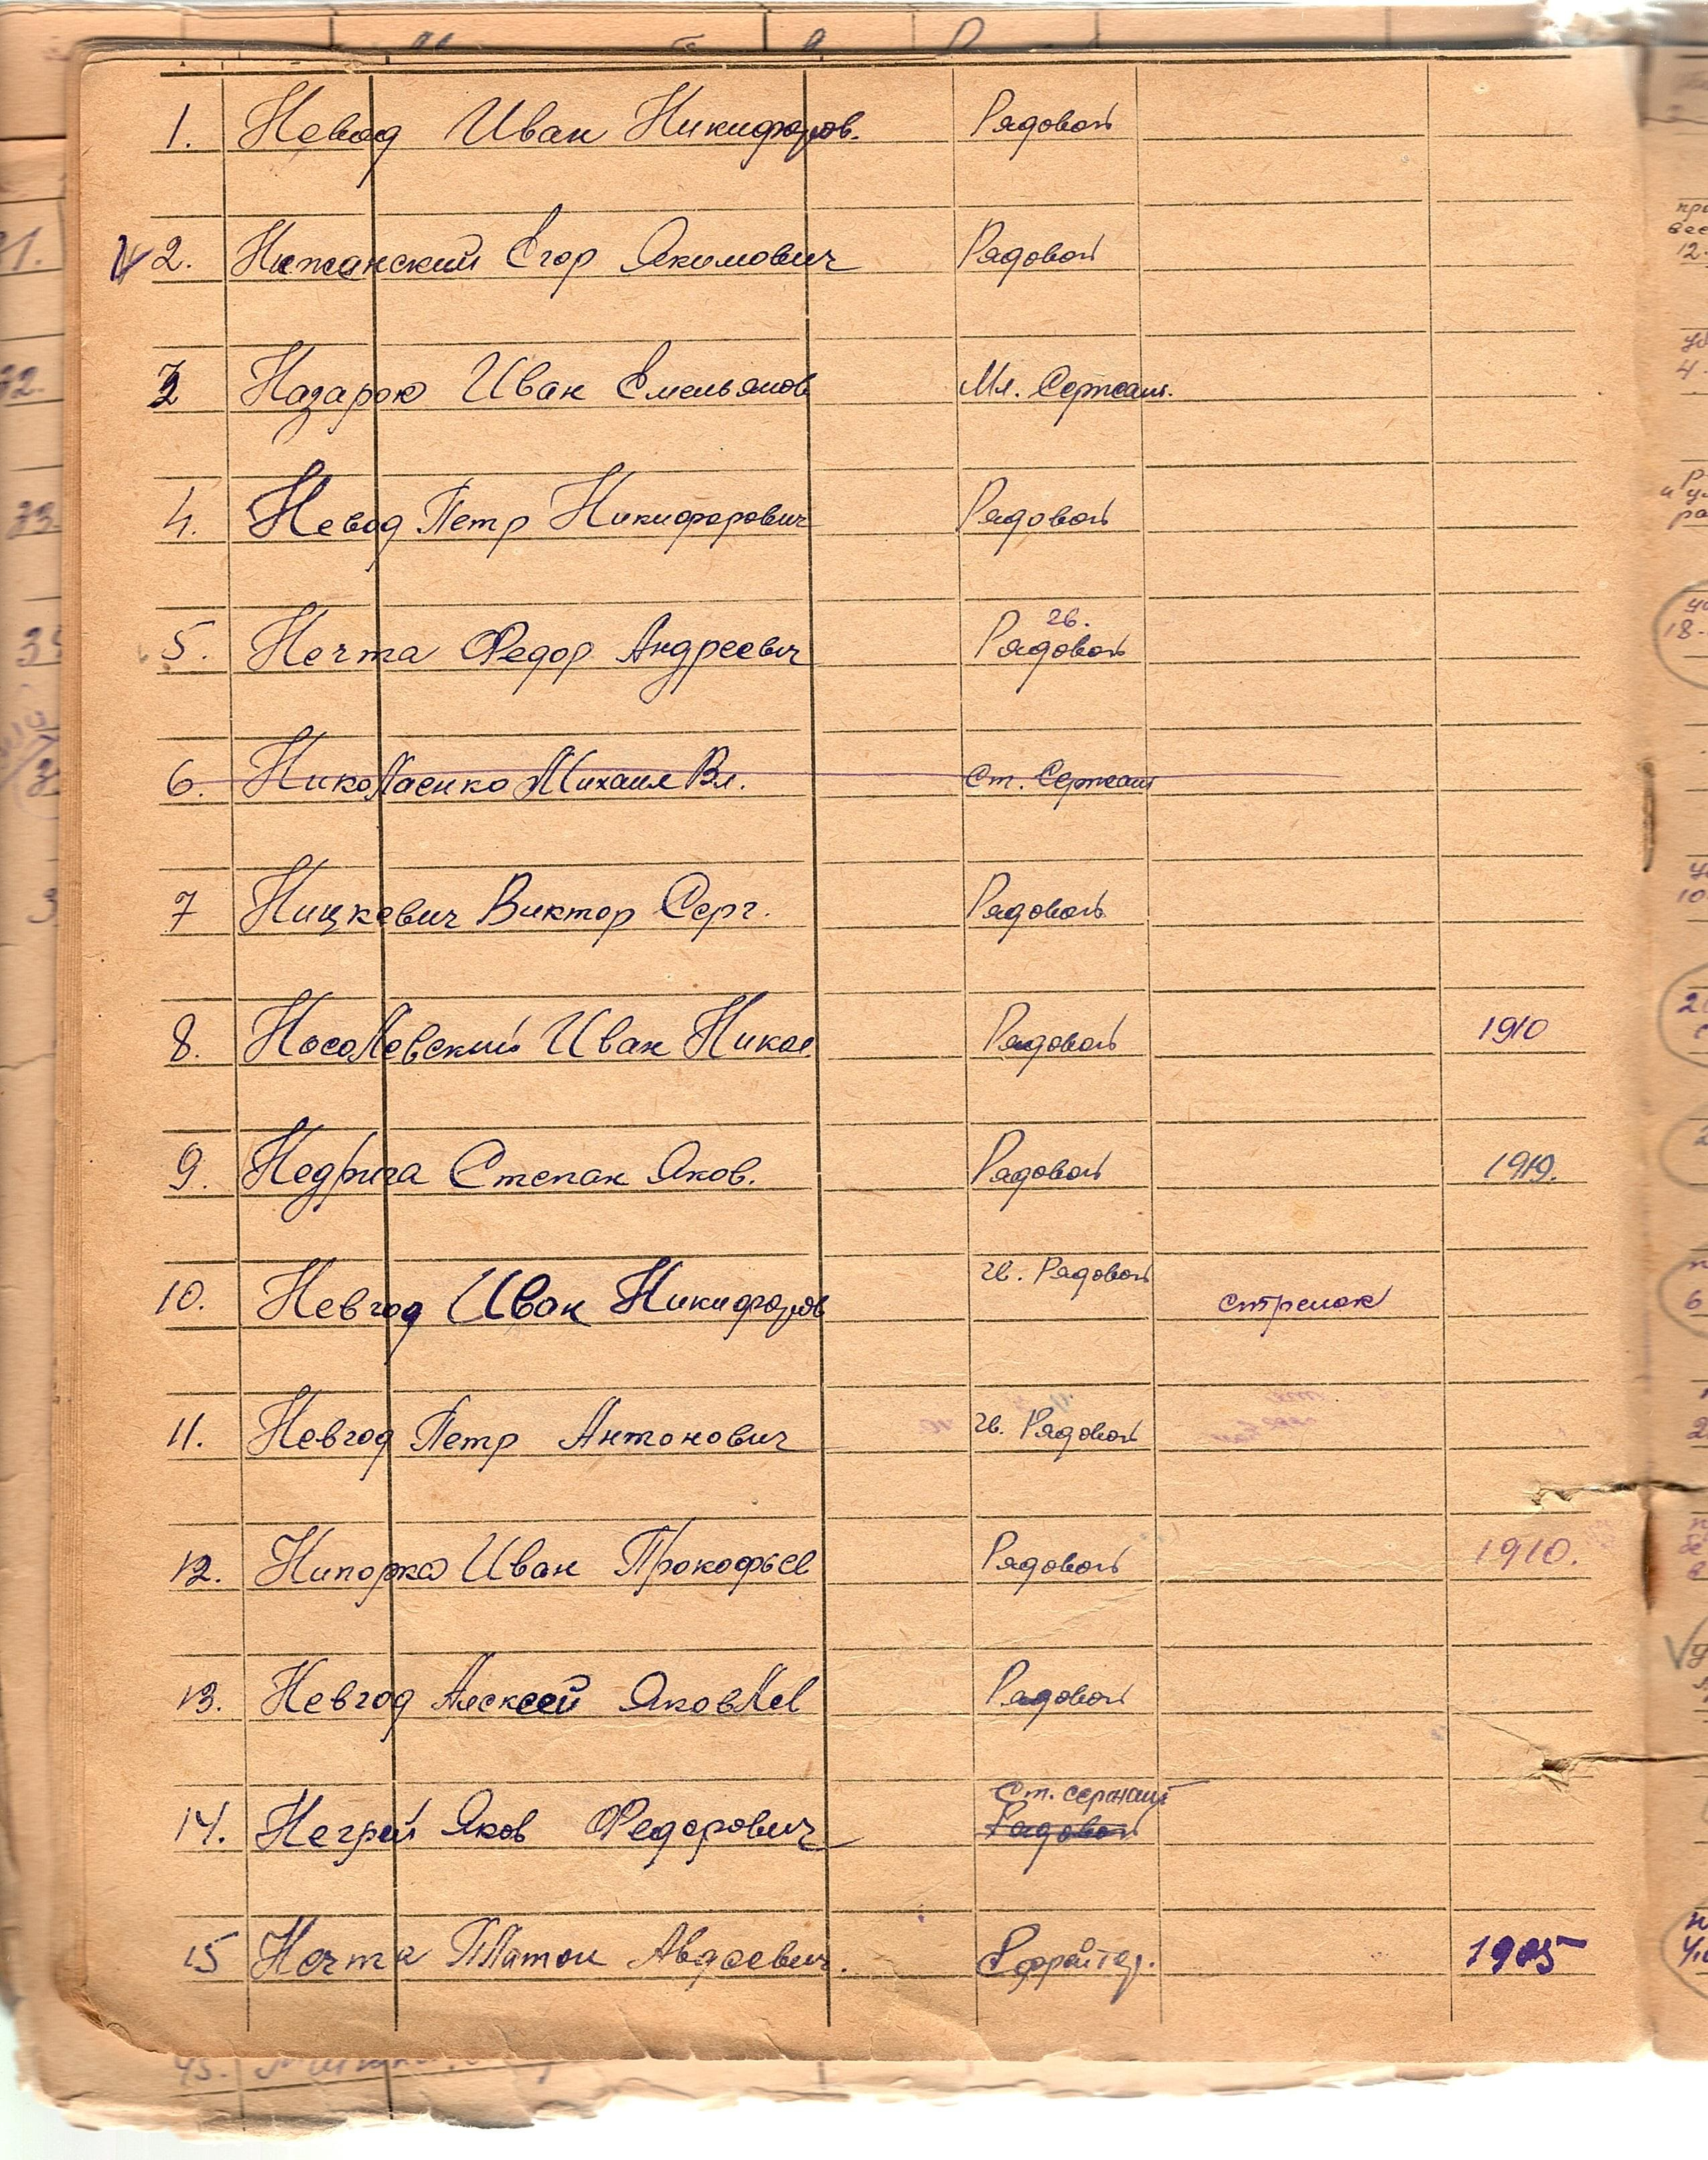 1. Невод Иван Никифоров. Рядовой
2. Нежанский Егор Якимович Рядовой
3 Назарок Иван Емельянов Мл. Сержант.
4. Невод Петр Никифорович Рядовой
гв.
5. Нечта Федор Андреевич Рядовой
6. Николаенко Михаил Вл. Ст. Сержант
7 Ницкевич Виктор Серг. Рядовой
8. Носолевский Иван Никол. Рядовой 1910
9. Недрига Степан Яков. Рядовой 1919.
гв. Рядовой
10. Невгод Иван Никифоров стрелок
11. Невгод Петр Антонович гв. Рядовой
12. Нипорка Иван Прокофьев Рядовой 1910.
13. Невгод Алексей Яковлев Рядовой
Ст. сержант
14. Негрей Яков Федорович Рядовой
15 Нечта Платон Авдеевич. Ефрейтор. 1905